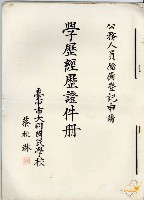 公務人員儲備登記申請
學歷經歷證件冊
臺南市大同國民學校
蔡松琳